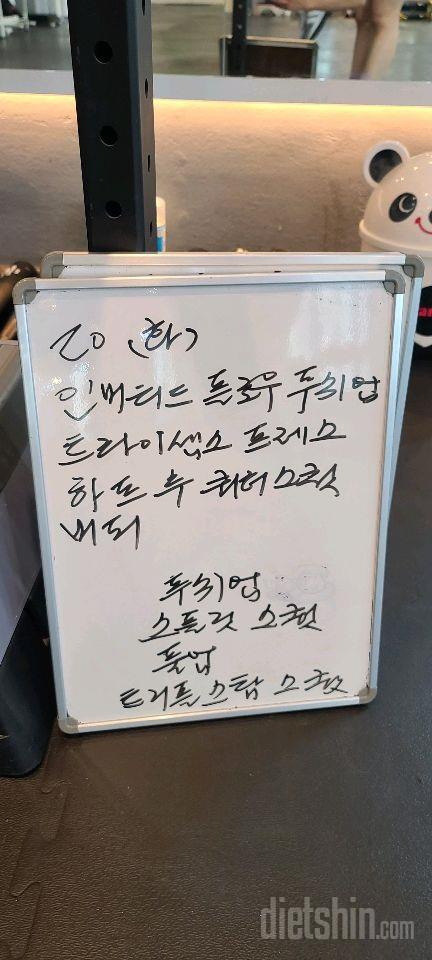 20 (화)
인버티드 플로우 푸쉬업
트라이셉스 프레스
하프 투 쿼터스쿼트
버피
푸쉬업
스플릿 스쿼트
풀업
트리플 스탑 스쿼트
dietshin.com